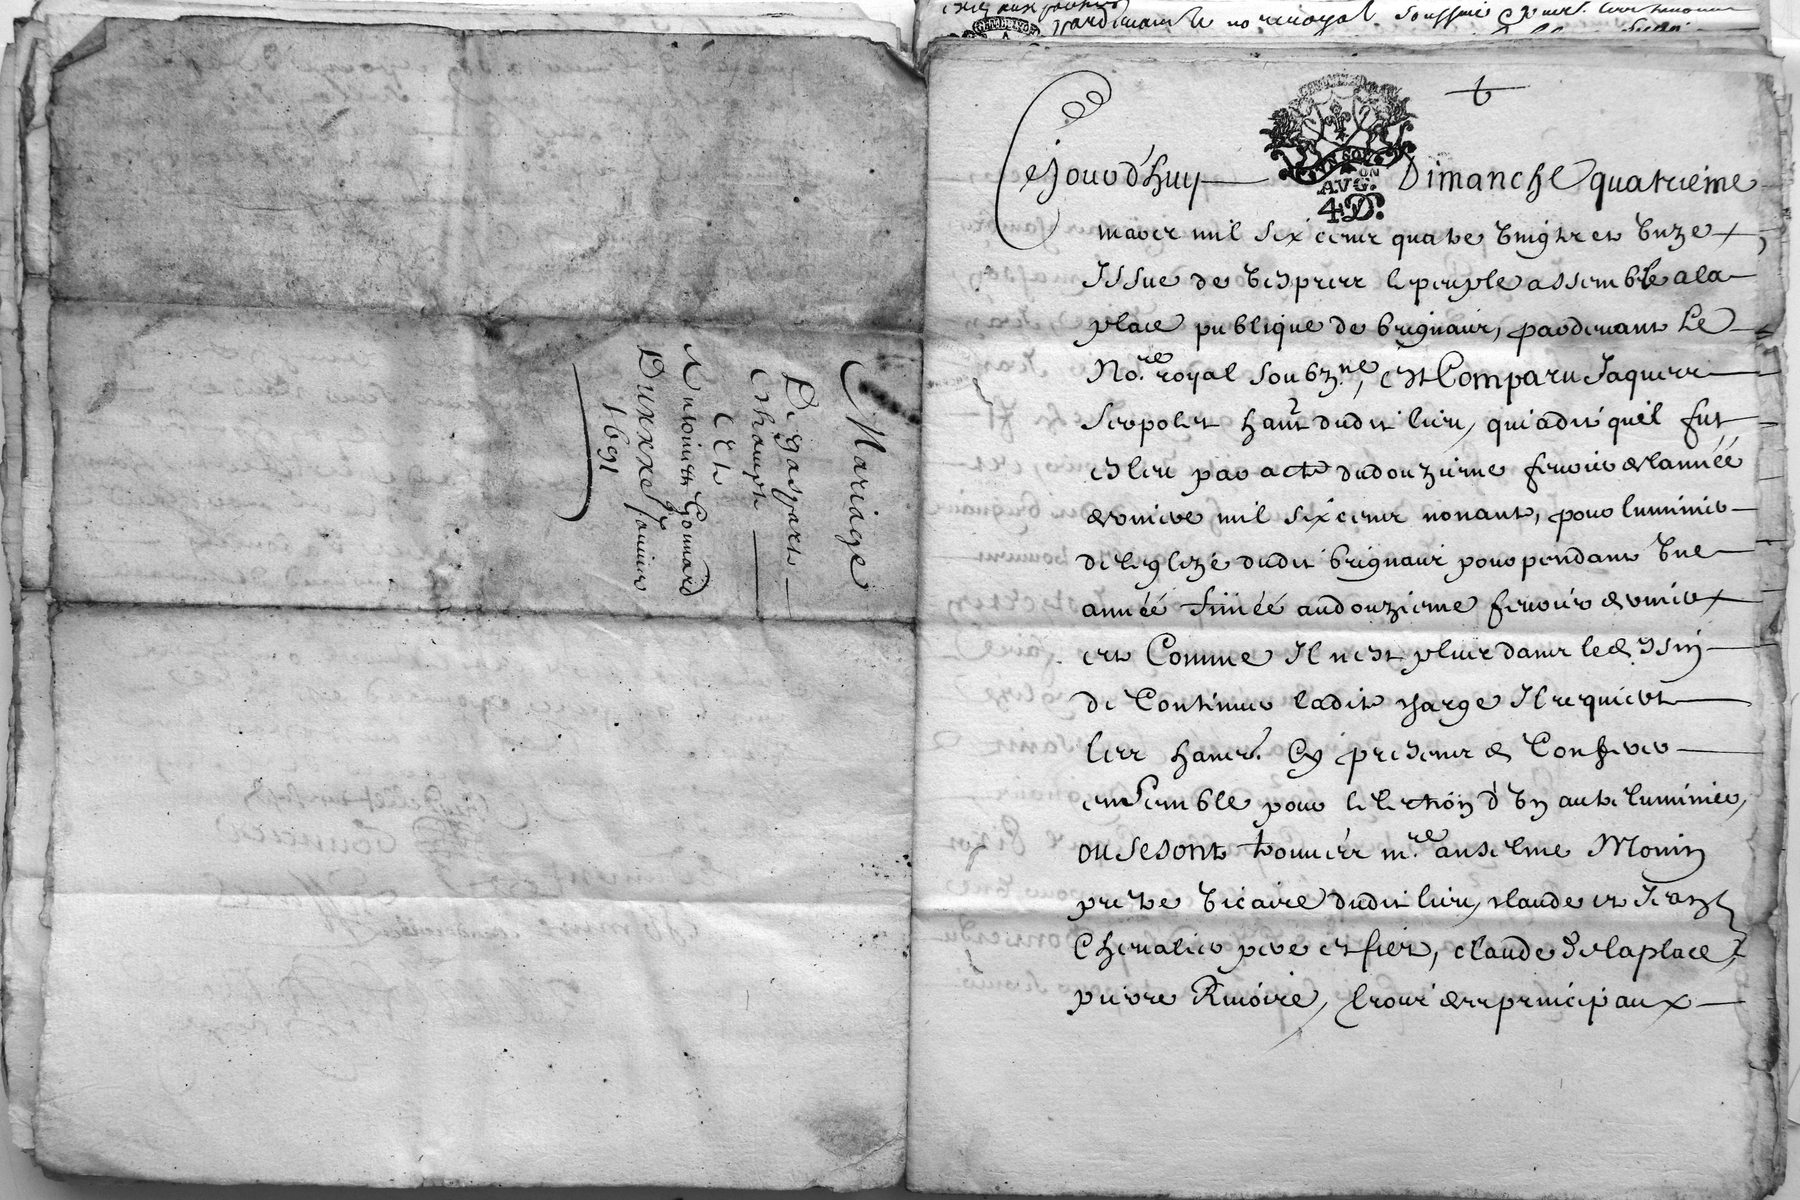 Mariage
De gaspart
Et
Anthoinette Gonnard
Du xxe janvier
1691
pardevant le no.re royal soussigné
AVG. ON
4D.
Cejourd'huy Dimanche quatrieme
mars mil six cens quatre vingts et unze
Issue de vespres le peuple assemblé a la
place publique de brignais, pardevant Le
No.re royal soubzné, est Comparu Jaques
hant dudit lieu, qui a dit qu'il fut
esleu par acte du douzieme fevrier de l'année
derniere mil six cens nonante, pour luminier
de leglize dudit brignais pour pendant une
année finiéé au douzieme fevrier dernier
et Comme Il n'est plus dans le dessin
de Continuer ladite charge Il requiert
les hans Cy presens de Conferer
ensemble pour lelection d'un autre luminier,
ou se sont trouvés m.re anselme Monin
prestre vicaire dudit lieu, claude et Jean
Chevalier pere et fils, claude delaplace,
pierre Rivoire, tous des principaux